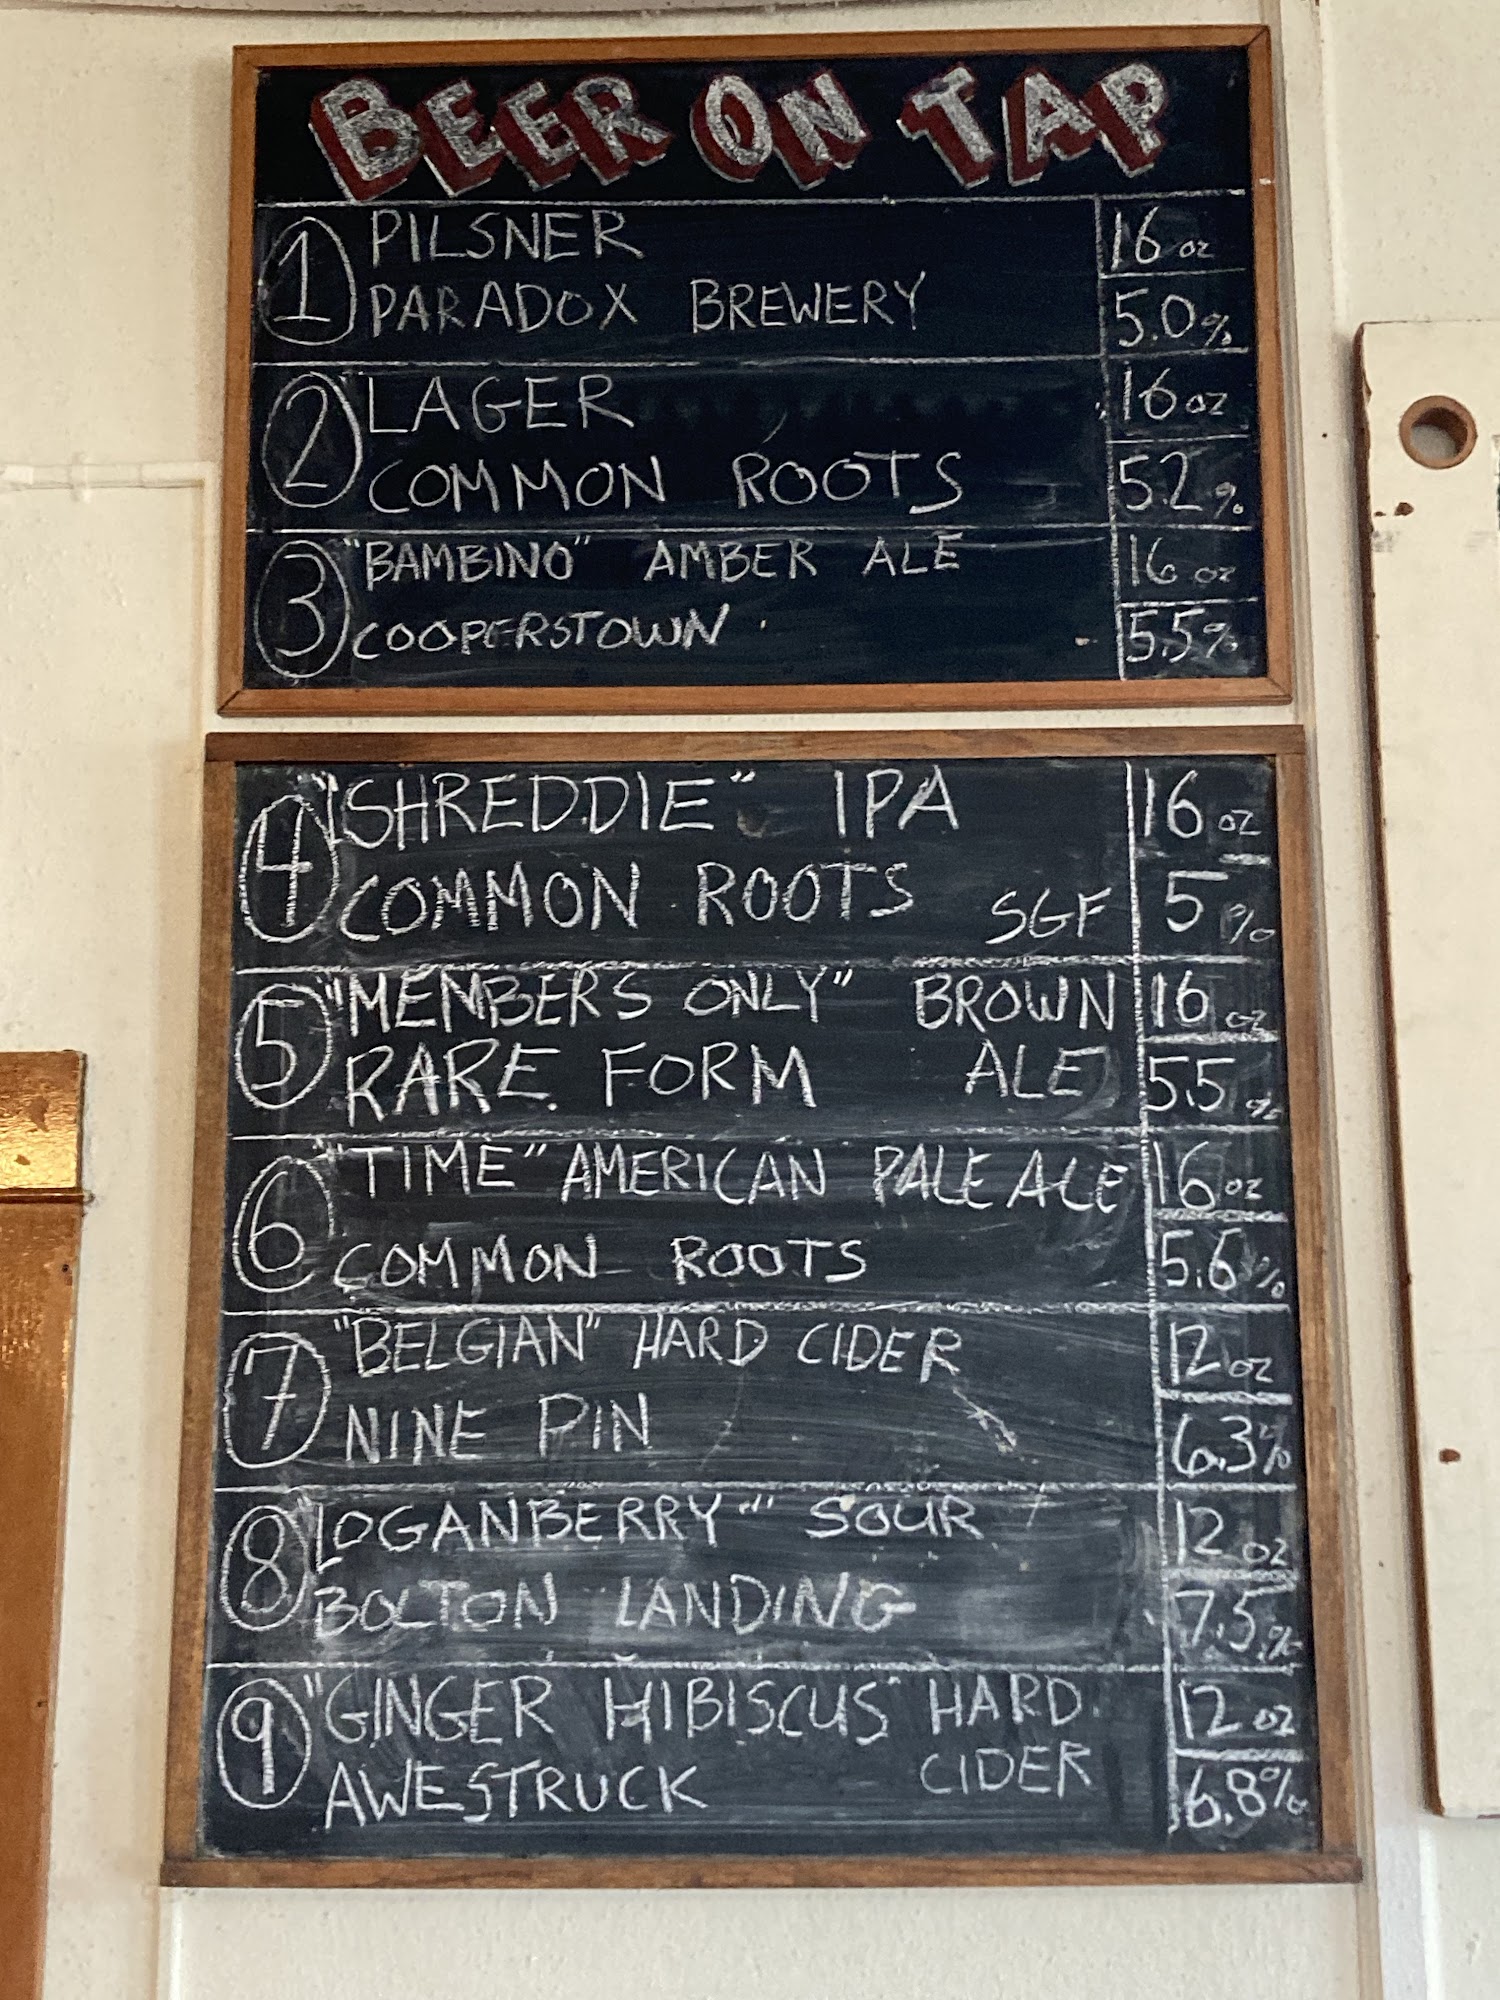 BEER ON TAP
1 PILSNER 16 oz
PARADOX BREWERY 5.0%
2 LAGER 16 oz
COMMON ROOTS 5.2%
3 "BAMBINO" AMBER ALE 16 oz
COOPERSTOWN 5.5%
4 "SHREDDIE" IPA 16 oz
COMMON ROOTS SGF 5%
5 "MEMBERS ONLY" BROWN 16 oz
RARE FORM ALE 5.5%
6 "TIME" AMERICAN PALE ALE 16 oz
COMMON ROOTS 5.6%
7 "BELGIAN" HARD CIDER 12 oz
NINE PIN 6.3%
8 "LOGANBERRY" SOUR 12 oz
BOLTON LANDING 7.5%
9 "GINGER HIBISCUS" HARD 12 oz
AWESTRUCK CIDER 6.8%